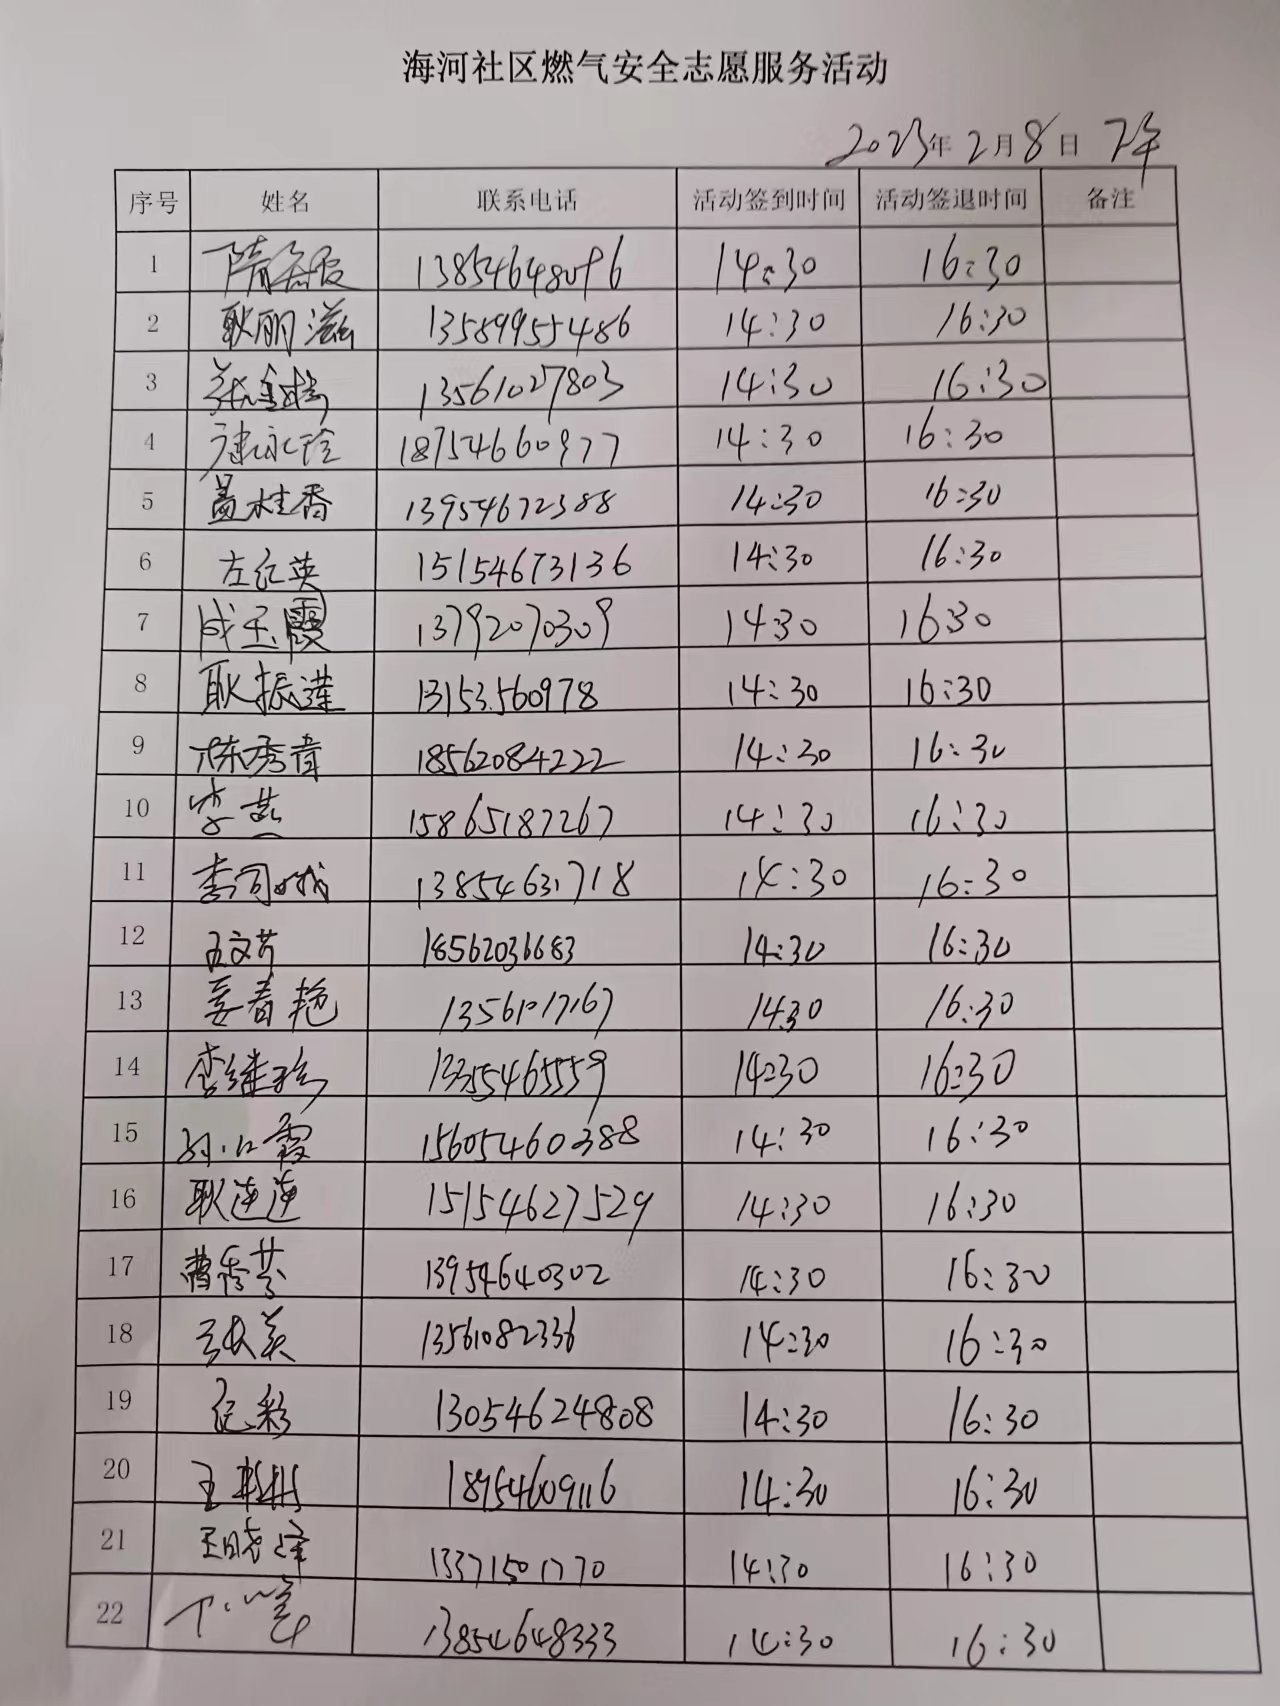 海河社区燃气安全志愿服务活动
2023年2月8日 下午
序号 姓名 联系电话 活动签到时间 活动签退时间 备注
1 隋 13854648096 14:30 16:30
2 耿丽滋 13589955486 14:30 16:30
3 13561027803 14:30 16:30
4 18754660977 14:30 16:30
5 盖桂香 13954672388 14:30 16:30
6 左红英 15154673136 14:30 16:30
7 成玉霞 13792070309 14:30 16:30
8 耿振莲 13153560978 14:30 16:30
9 陈秀 18562084222 14:30 16:30
10 李燕 15865187267 14:30 16:30
11 李同 13854631718 14:30 16:30
12 王文芹 18562036683 14:30 16:30
13 姜春艳 13561017167 14:30 16:30
14 李继珍 13355465559 14:30 16:30
15 孙红霞 15605460388 14:30 16:30
16 耿莲莲 15154627529 14:30 16:30
17 曹秀芬 13954640302 14:30 16:30
18 张美 13561082336 14:30 16:30
19 纪彩 13054624808 14:30 16:30
20 王 18954609116 14:30 16:30
21 王晓峰 13371501770 14:30 16:30
22 13854648333 14:30 16:30